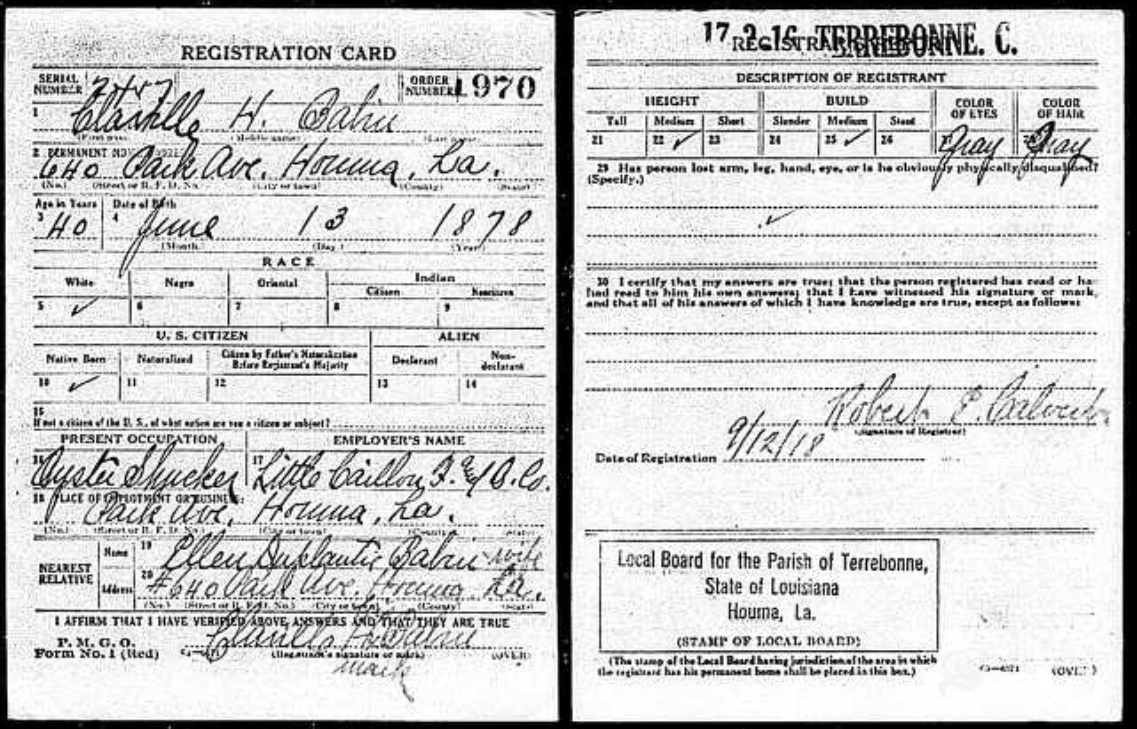 REGISTRATION CARD
SERIAL NUMBER ORDER NUMBER 1970
1 H. Babin
(First name) (Middle name) (Last name)
2 PERMANENT HOME ADDRESS:
640 Park Ave. Houma, La.
(No.) (Street or R. F. D. No.) (City or town) (County) (State)
Age in Years Date of Birth
3 40 4 June 13 1878
(Month.) (Day.) (Year.)
RACE
White Negro Oriental Indian
Citizen Noncitizen
5 ✓ 6 7 8 9
U. S. CITIZEN ALIEN
Native Born Naturalized Citizen by Father's Naturalization Before Registrant's Majority Declarant Non-declarant
10 ✓ 11 12 13 14
15
If not a citizen of the U. S., of what nation are you a citizen or subject?
PRESENT OCCUPATION EMPLOYER'S NAME
16 Oyster Shucker 17 Little Caillou F. & O. Co.
18 PLACE OF EMPLOYMENT OR BUSINESS:
Park Ave, Houma, La.
(No.) (Street or R. F. D. No.) (City or town) (County) (State)
NEAREST RELATIVE
Name 19 Ellen Duplantis Babin - wife
Address 20 #640 Park Ave. Houma La.
(No.) (Street or R. F. D. No.) (City or town) (County) (State)
I AFFIRM THAT I HAVE VERIFIED ABOVE ANSWERS AND THAT THEY ARE TRUE
P. M. G. O.
Form No. 1 (Red) Babin
(Registrant's signature or mark) (OVER)
mark
17 2 16 TERREBONNE. C.
REGISTRAR'S REPORT
DESCRIPTION OF REGISTRANT
HEIGHT BUILD COLOR OF EYES COLOR OF HAIR
Tall Medium Short Slender Medium Stout
21 22 ✓ 23 24 25 ✓ 26 27 Gray 28 Gray
29 Has person lost arm, leg, hand, eye, or is he obviously physically disqualified?
(Specify.)
✓
30 I certify that my answers are true; that the person registered has read or has
had read to him his own answers; that I have witnessed his signature or mark,
and that all of his answers of which I have knowledge are true, except as follows:
Robert
(Signature of Registrar)
Date of Registration 9/12/18
Local Board for the Parish of Terrebonne,
State of Louisiana
Houma, La.
(STAMP OF LOCAL BOARD)
(The stamp of the Local Board having jurisdiction of the area in which
the registrant has his permanent home shall be placed in this box.)
(OVER)